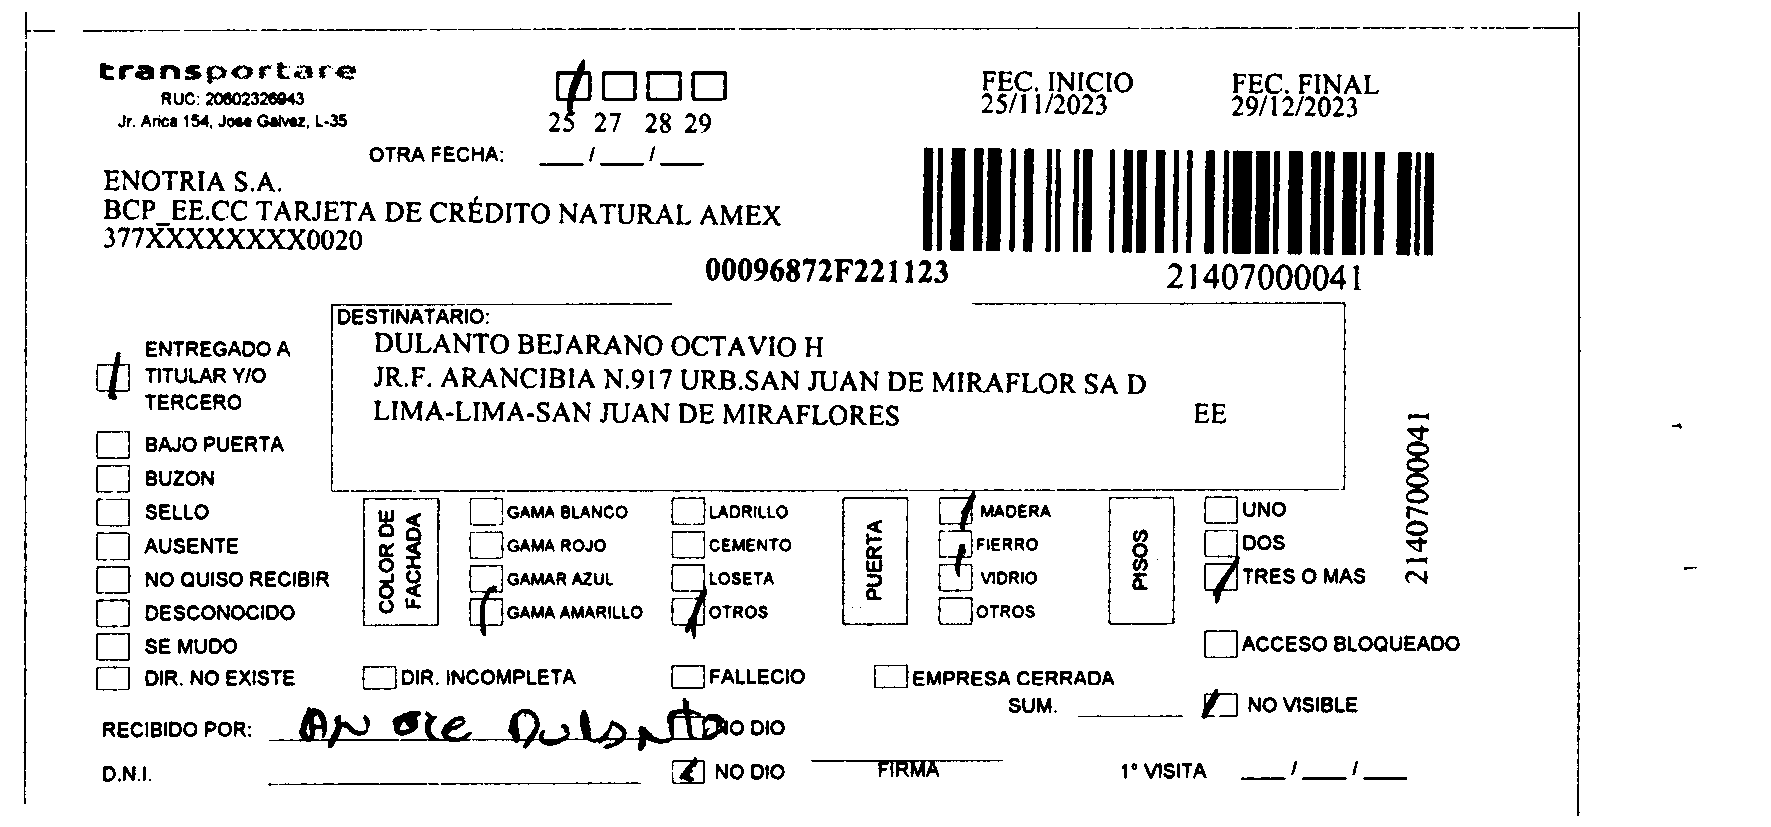 transportare
RUC: 20602326943
Jr. Arica 154, Jose Galvez, L-35
25 27 28 29
OTRA FECHA: ___/___/___
FEC. INICIO
25/11/2023
FEC. FINAL
29/12/2023
ENOTRIA S.A.
BCP_EE.CC TARJETA DE CRÉDITO NATURAL AMEX
377XXXXXXXX0020
00096872F221123
21407000041
DESTINATARIO:
DULANTO BEJARANO OCTAVIO H
JR.F. ARANCIBIA N.917 URB.SAN JUAN DE MIRAFLOR SA D
LIMA-LIMA-SAN JUAN DE MIRAFLORES EE
21407000041
ENTREGADO A
TITULAR Y/O
TERCERO
BAJO PUERTA
BUZON
SELLO
AUSENTE
NO QUISO RECIBIR
DESCONOCIDO
SE MUDO
DIR. NO EXISTE
COLOR DE
FACHADA
GAMA BLANCO
GAMA ROJO
GAMAR AZUL
GAMA AMARILLO
LADRILLO
CEMENTO
LOSETA
OTROS
PUERTA
MADERA
FIERRO
VIDRIO
OTROS
PISOS
UNO
DOS
TRES O MAS
ACCESO BLOQUEADO
DIR. INCOMPLETA
FALLECIO
EMPRESA CERRADA
SUM. ________
NO VISIBLE
RECIBIDO POR: Andre Dulanto NO DIO
D.N.I. ________ NO DIO
FIRMA
1° VISITA ___/___/___